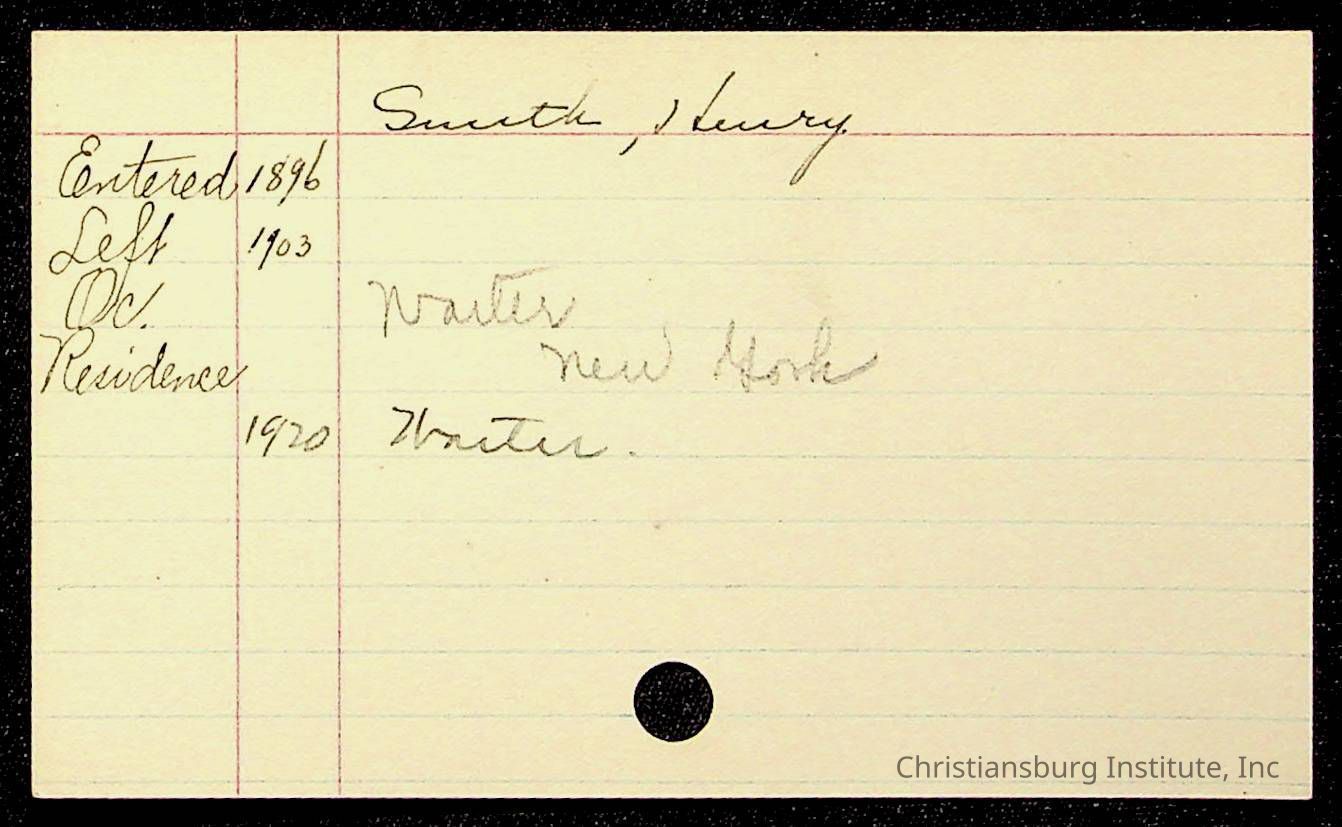 Smith, Henry
Entered 1896
Left 1903
Oc. Waiter
Residence New York
1920 Waiter.
Christiansburg Institute, Inc